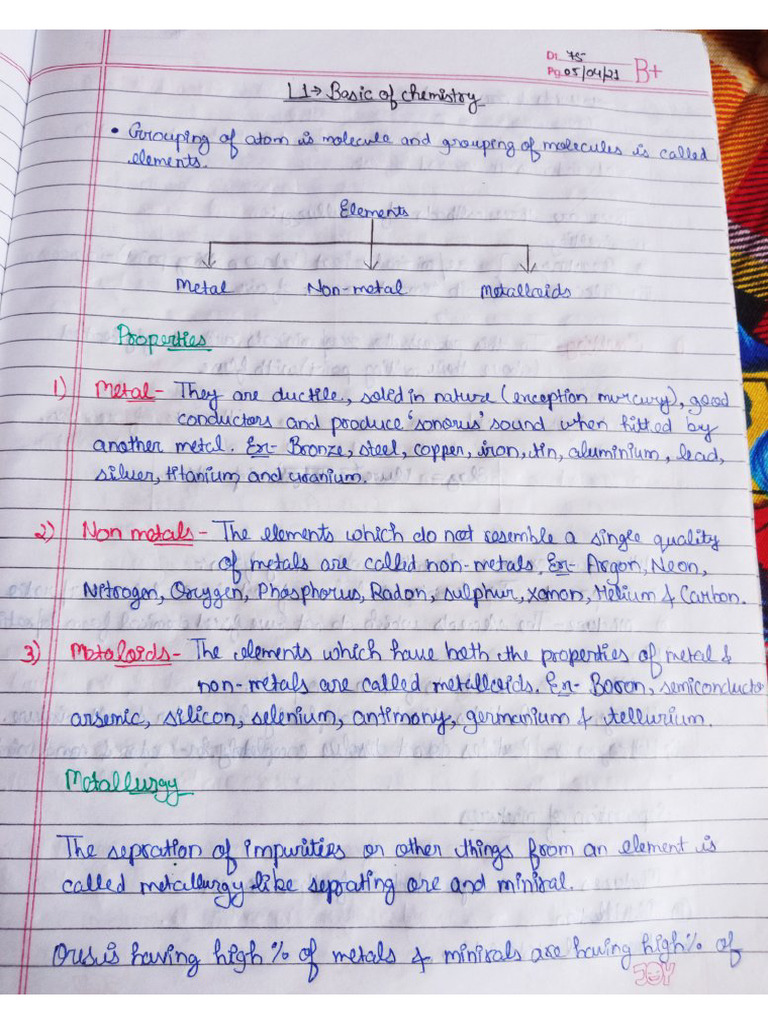 Dt. 75
Pg. 05/04/21
B+
L1→ Basic of chemistry
• Grouping of atom is molecule and grouping of molecules is called
elements.
Elements
Metal Non-metal Metalloids
Properties
1) Metal - They are ductile, solid in nature (exception murcury), good
conductors and produce 'sonorus' sound when hitted by
another metal. Ex- Bronze, steel, copper, iron, tin, aluminium, lead,
silver, titanium and uranium.
2) Non metals - The elements which do not resemble a single quality
of metals are called non-metals. Ex- Argon, Neon,
Nitrogen, Oxygen, Phosphorus, Radon, sulphur, xonon, Helium & Carbon.
3) Metaloids - The elements which have both the properties of metal &
non-metals are called metalloids. Ex- Boron, semiconducto
arsenic, silicon, selenium, antimony, germanium & tellurium.
Metallurgy
The sepration of impurities or other things from an element is
called metallurgy like seprating ore and miniral.
Ores is having high % of metals & minirals are having high % of
JOY